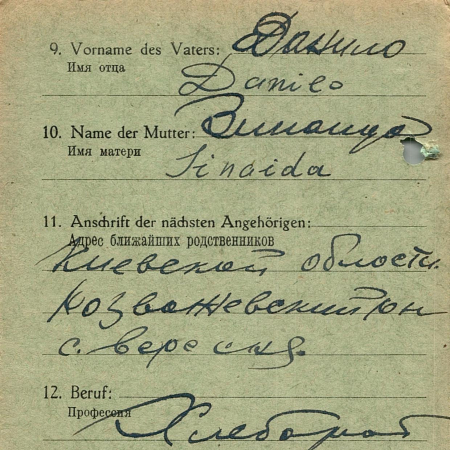 9. Vorname des Vaters: Данило
Имя отца
Danilo
10. Name der Mutter: Зинаида
Имя матери
Sinaida
11. Anschrift der nächsten Angehörigen:
Адрес ближайших родственников
Киевской области.
Розважевский рн
с. Вересня.
12. Beruf:
Профессия
Хлебороб